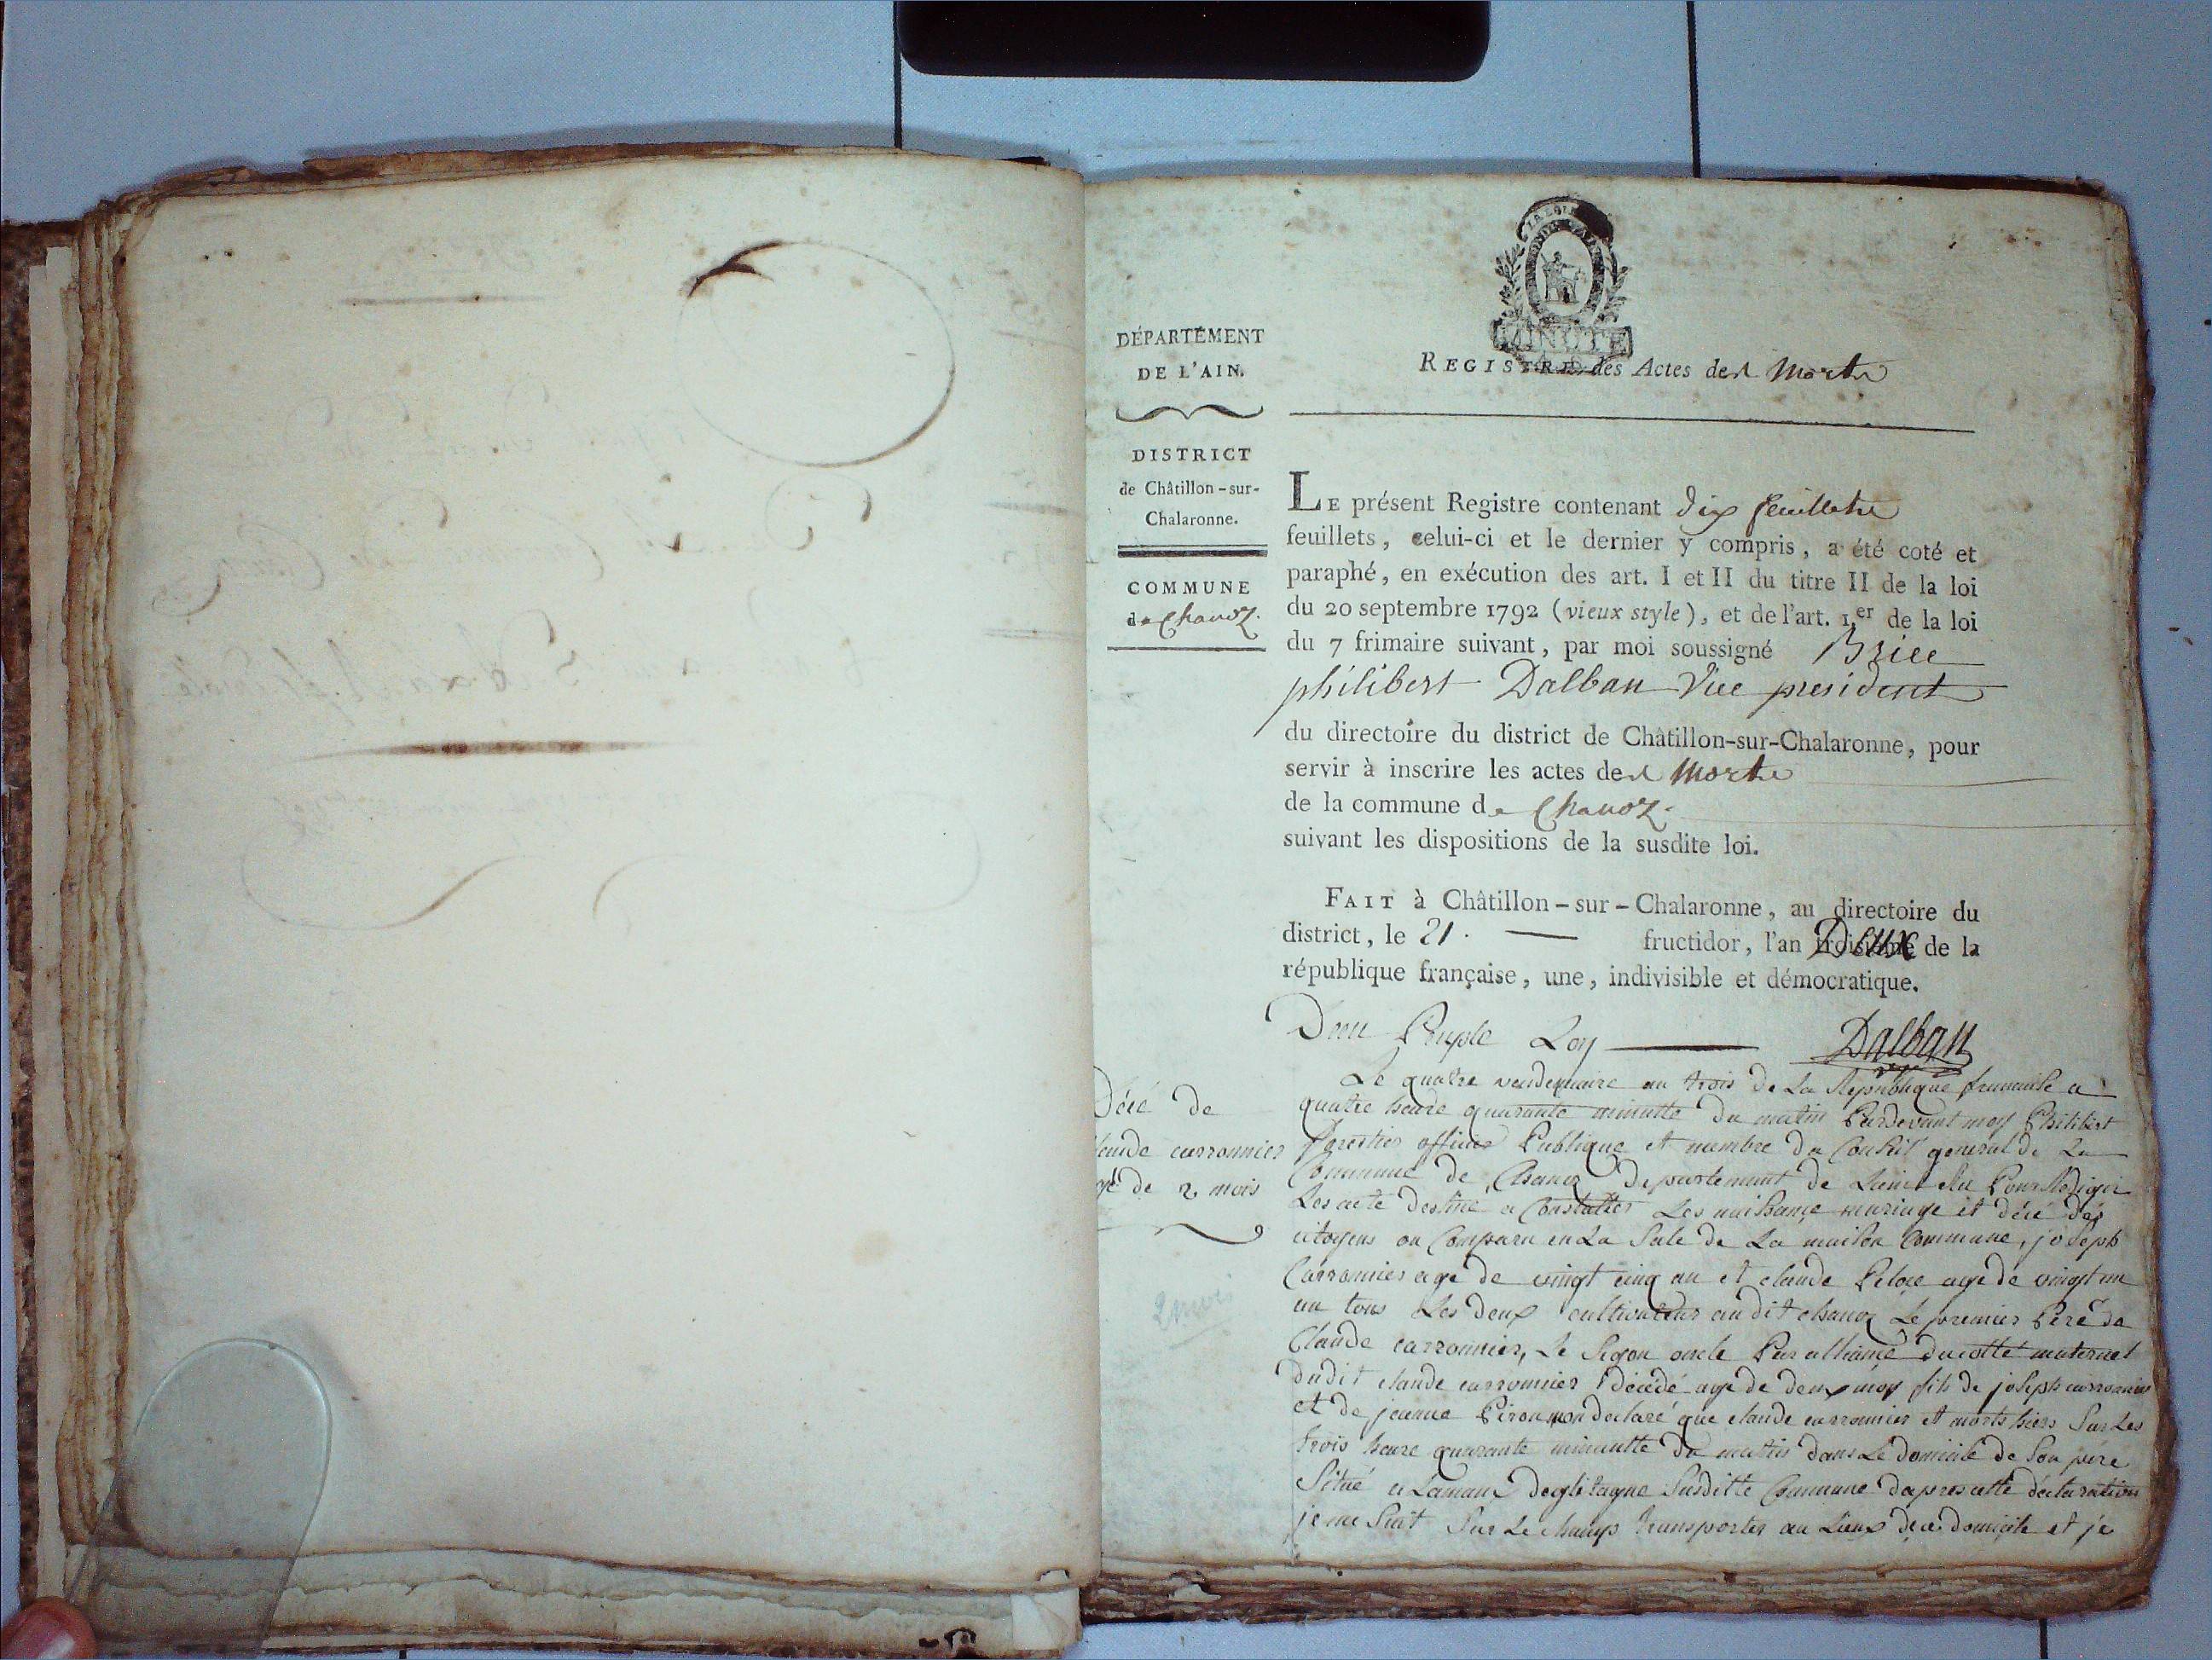 MINUTE
DÉPARTEMENT
DE L'AIN.
DISTRICT
de Châtillon-sur-
Chalaronne.
COMMUNE
de Chanoz.
REGISTRE des Actes des Morts
LE présent Registre contenant dix feuillets
feuillets, celui-ci et le dernier y compris, a été coté et
paraphé, en exécution des art. I et II du titre II de la loi
du 20 septembre 1792 (vieux style), et de l'art. 1.er de la loi
du 7 frimaire suivant, par moi soussigné Brice
philibert Dalban Vice president
du directoire du district de Châtillon-sur-Chalaronne, pour
servir à inscrire les actes des Morts
de la commune de Chanoz.
suivant les dispositions de la susdite loi.
FAIT à Châtillon-sur-Chalaronne, au directoire du
district, le 21. fructidor, l'an Deux de la
république française, une, indivisible et démocratique.
Dieu Peuple Loy Dalban
Décé de
Claude carronnier
agé de 2 mois
2 mois
Le quatre vendemiaire an trois de La Republique francaise a
quatre heure quarante minutte du matin Pardevant moy Philibert
forestier officier Publique et membre du Conseil general de La
Commune de Chanoz Departement de Lain elu Pour Rediger
Les acte destiné a Constatter Les naissance mariage et décé des
citoyens on Comparu en La Sale de La maison Commune, joseph
Carronnier age de vingt cinq an et claude Peloce age de vingt un
an tous Les deux cultivateur au dit chanoz Le premier Pere de
Claude carronnier, Le Segon oncle Par alliance du cotté maternel
dudit claude carronnier décédé age de deux moy fils de joseph carronnier
et de jeanne Piron mon declaré que claude carronnier et morts hiers Sur Les
trois heure quarante minutte du matin dans Le domicile de Son pere
Situé a Lamaux Susditte Commune dapres cette déclaration
je me Suit Sur Le champ transporter au Lieux de ce domicile et je